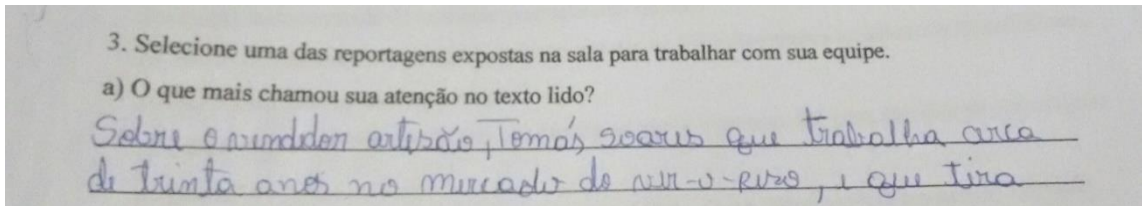 3. Selecione uma das reportagens expostas na sala para trabalhar com sua equipe.
a) O que mais chamou sua atenção no texto lido?
Sobre o vendedor artesão, Tomás soares que trabalha cerca
de trinta anos no mercado do ver-o-peso, e que tira